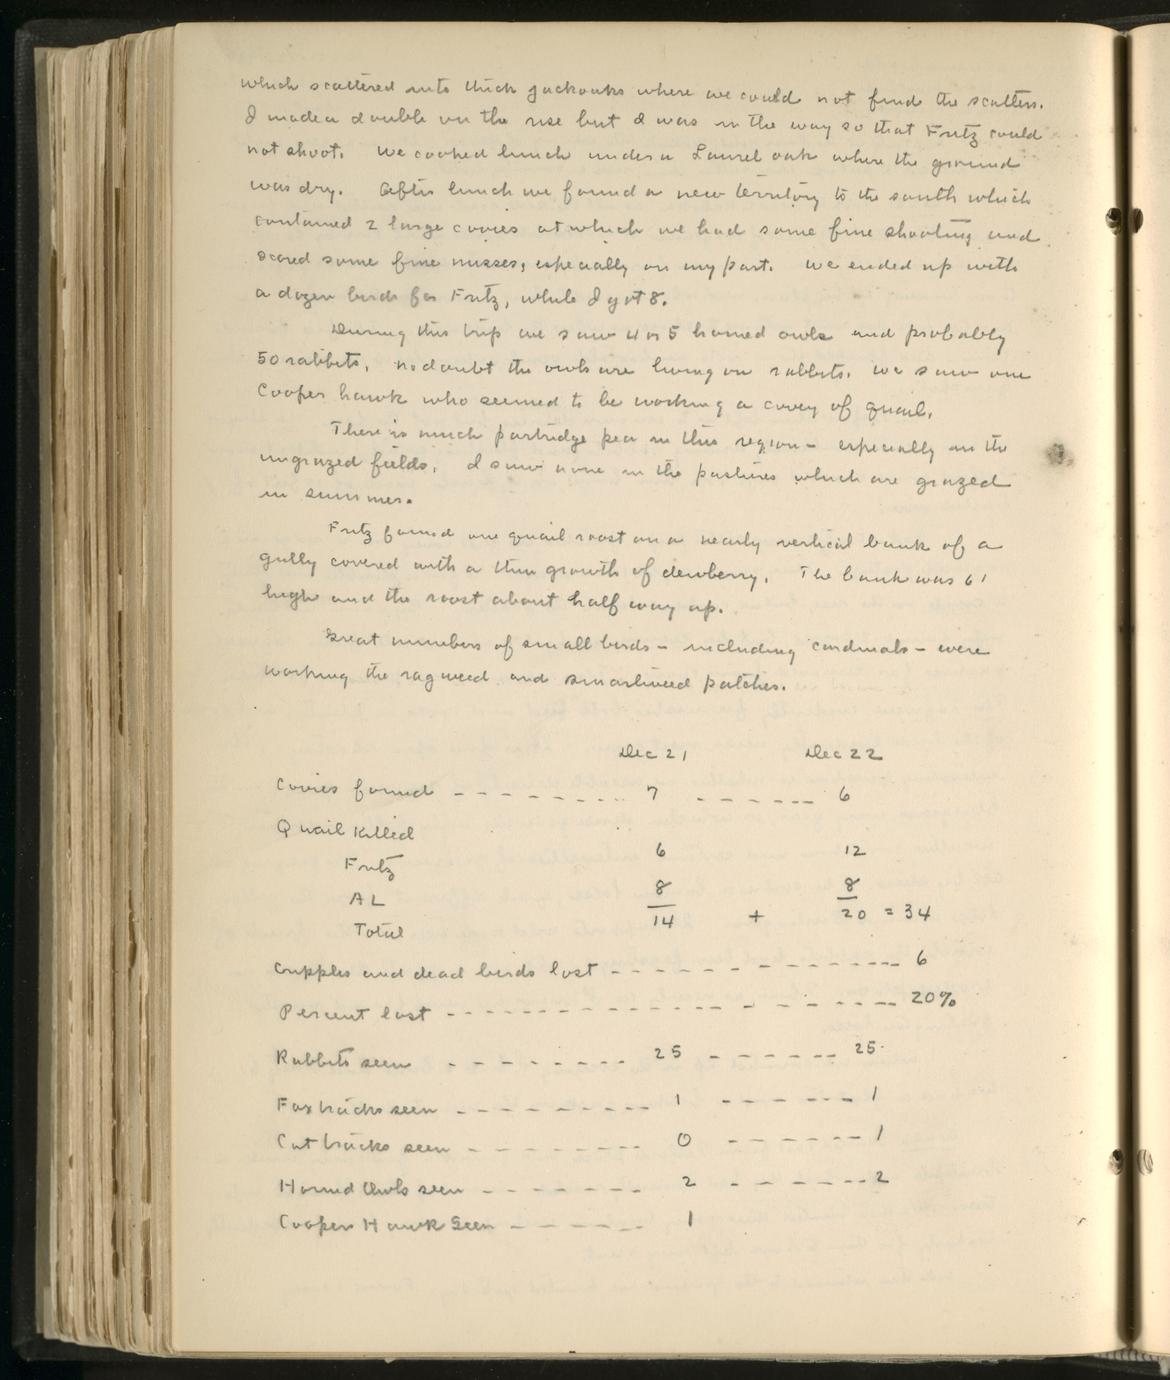 which scattered into thick jackoaks where we could not find the scatters.
I made a double on the rise but I was in the way so that Fritz could
not shoot. We cooked lunch under a Laurel oak where the ground
was dry. After lunch we found a new territory to the south which
contained 2 large covies at which we had some fine shooting and
scored some fine misses, especially on my part. We ended up with
a dozen birds for Fritz, while I got 8.
During this trip we saw 4 or 5 horned owls and probably
50 rabbits. No doubt the owls are living on rabbits. We saw one
Cooper hawk who seemed to be working a covey of quail.
There is much partridge pea in this region - especially in the
ungrazed fields. I saw none in the pastures which are grazed
in summer.
Fritz found one quail roost on a nearly vertical bank of a
gully covered with a thin growth of dewberry. The bank was 6'
high and the roost about half way up.
Great numbers of small birds - including cardinals - were
working the ragweed and smartweed patches.
Dec 21 Dec 22
Covies found - - - - - - - - 7 - - - - - - - 6
Quail Killed
Fritz 6 12
AL 8 8
Total 14 + 20 = 34
Cripples and dead birds lost - - - - - - - - - - - - - - 6
Percent lost - - - - - - - - - - - - - - - - - - - - 20%
Rabbits seen - - - - - - - - 25 - - - - - - 25
Fox tracks seen - - - - - - - - - 1 - - - - - - 1
Cat tracks seen - - - - - - - - 0 - - - - - - 1
Horned Owls seen - - - - - - - 2 - - - - - - 2
Cooper Hawk Seen - - - - - - 1